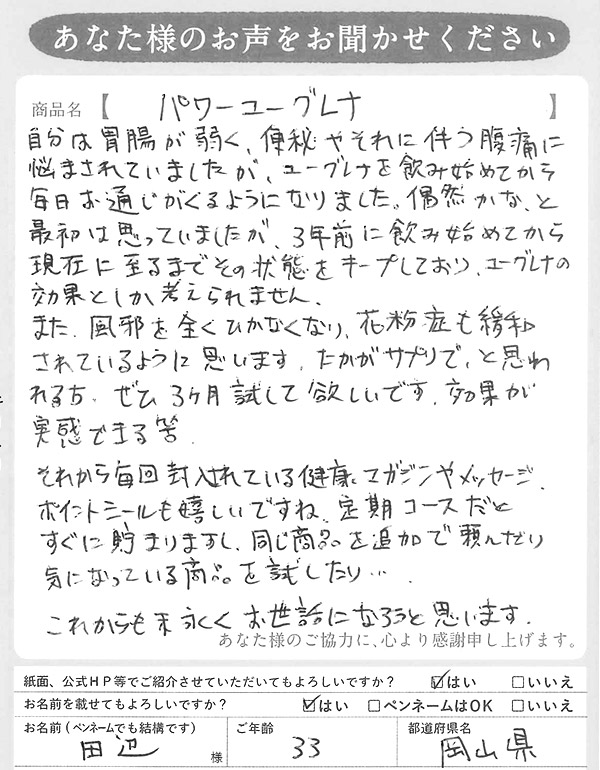 あなた様のお声をお聞かせください
商品名【 パワーユーグレナ 】
自分は胃腸が弱く、便秘やそれに伴う腹痛に
悩まされていましたが、ユーグレナを飲み始めてから
毎日お通じがくるようになりました。偶然かな、と
最初は思っていましたが、3年前に飲み始めてから
現在に至るまでその状態をキープしており、ユーグレナの
効果としか考えられません。
また、風邪を全くひかなくなり、花粉症も緩和
されているように思います。たかがサプリで、と思わ
れる方、ぜひ3ヶ月試して欲しいです。効果が
実感できる筈。
それから毎回封入されている健康マガジンやメッセージ、
ポイントシールも嬉しいですね。定期コースだと
すぐに貯まりますし、同じ商品を追加で頼んだり
気になっている商品を試したり…。
これからも末永くお世話になろうと思います。
あなた様のご協力に、心より感謝申し上げます。
紙面、公式HP等でご紹介させていただいてもよろしいですか? ☑はい □いいえ
お名前を載せてもよろしいですか? ☑はい □ペンネームはOK □いいえ
お名前(ペンネームでも結構です) ご年齢 都道府県名
田辺 様 33 岡山県